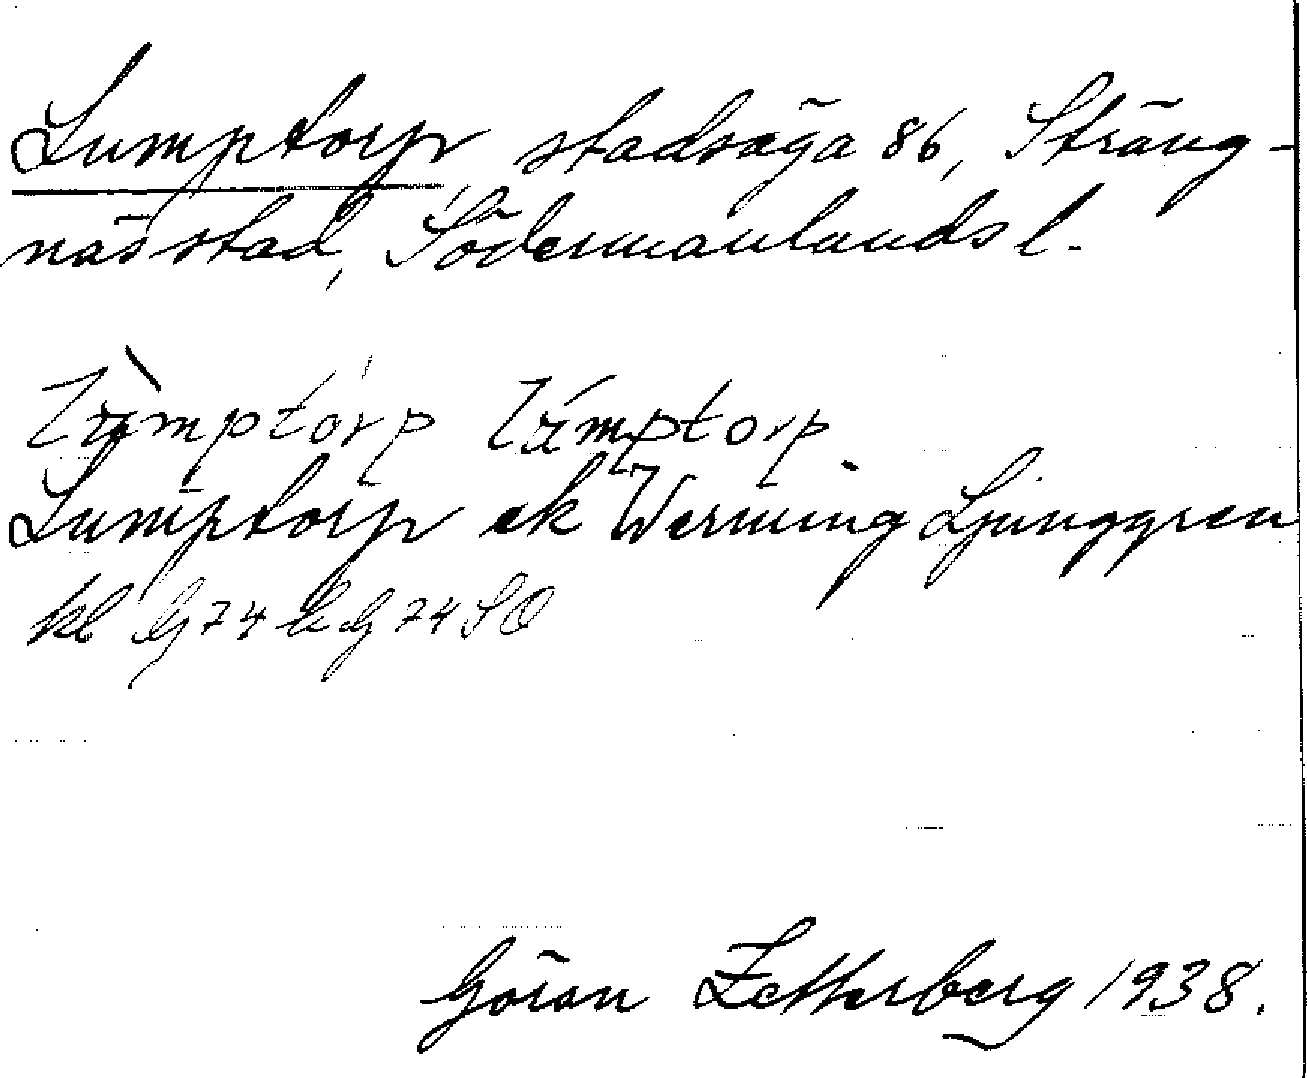 Lumptorp, stadsäga 86, Sträng-
näs stad, Södermanlands l.
Lumptorp ek Werning Ljunggren
kl G 74 k G 74 SO
Göran Zetterberg 1938.